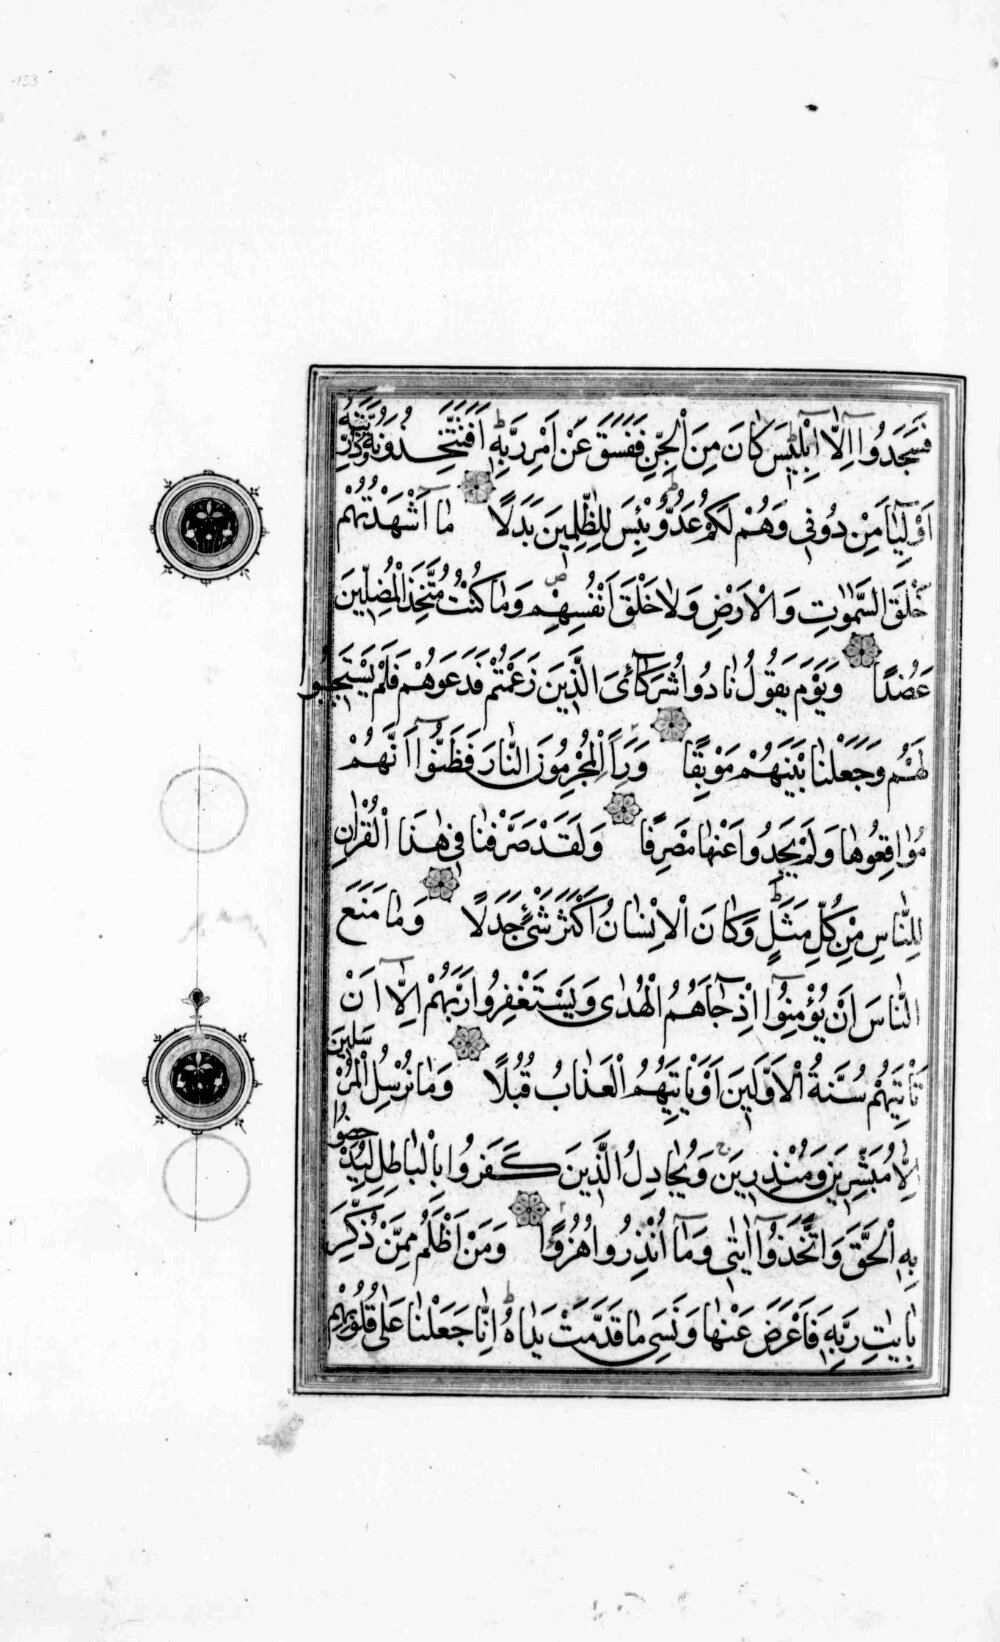 153
فَسَجَدُوا اِلَّا اِبْلِيسَ كَانَ مِنَ الْجِنِّ فَفَسَقَ عَنْ اَمْرِ رَبِّهِ اَفَتَتَّخِذُونَهُ وَذُرِّيَّتَهُ
اَوْلِيَاءَ مِنْ دُونِى وَهُمْ لَكُمْ عَدُوٌّ بِئْسَ لِلظَّالِمِينَ بَدَلًا مَا اَشْهَدْتُهُمْ
خَلْقَ السَّمٰوَاتِ وَالْاَرْضِ وَلَا خَلْقَ اَنْفُسِهِمْ وَمَا كُنْتُ مُتَّخِذَ الْمُضِلِّينَ
عَضُدًا وَيَوْمَ يَقُولُ نَادُوا شُرَكَائِىَ الَّذِينَ زَعَمْتُمْ فَدَعَوْهُمْ فَلَمْ يَسْتَجِيبُوا
لَهُمْ وَجَعَلْنَا بَيْنَهُمْ مَوْبِقًا وَرَاَ الْمُجْرِمُونَ النَّارَ فَظَنُّوا اَنَّهُمْ
مُوَاقِعُوهَا وَلَمْ يَجِدُوا عَنْهَا مَصْرِفًا وَلَقَدْ صَرَّفْنَا فِى هٰذَا الْقُرْاٰنِ
لِلنَّاسِ مِنْ كُلِّ مَثَلٍ وَكَانَ الْاِنْسَانُ اَكْثَرَ شَىْءٍ جَدَلًا وَمَا مَنَعَ
النَّاسَ اَنْ يُؤْمِنُوا اِذْ جَاءَهُمُ الْهُدٰى وَيَسْتَغْفِرُوا رَبَّهُمْ اِلَّا اَنْ
تَاْتِيَهُمْ سُنَّةُ الْاَوَّلِينَ اَوْ يَاْتِيَهُمُ الْعَذَابُ قُبُلًا وَمَا نُرْسِلُ الْمُرْسَلِينَ
اِلَّا مُبَشِّرِينَ وَمُنْذِرِينَ وَيُجَادِلُ الَّذِينَ كَفَرُوا بِالْبَاطِلِ لِيُدْحِضُوا
بِهِ الْحَقَّ وَاتَّخَذُوا اٰيَاتِى وَمَا اُنْذِرُوا هُزُوًا وَمَنْ اَظْلَمُ مِمَّنْ ذُكِّرَ
بِاٰيَاتِ رَبِّهِ فَاَعْرَضَ عَنْهَا وَنَسِىَ مَا قَدَّمَتْ يَدَاهُ اِنَّا جَعَلْنَا عَلٰى قُلُوبِهِمْ